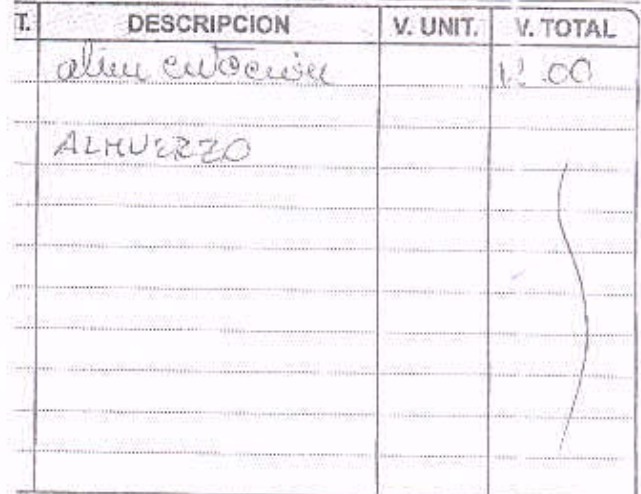 T. DESCRIPCION V. UNIT. V. TOTAL
alimentación 12.00
ALMUERZO